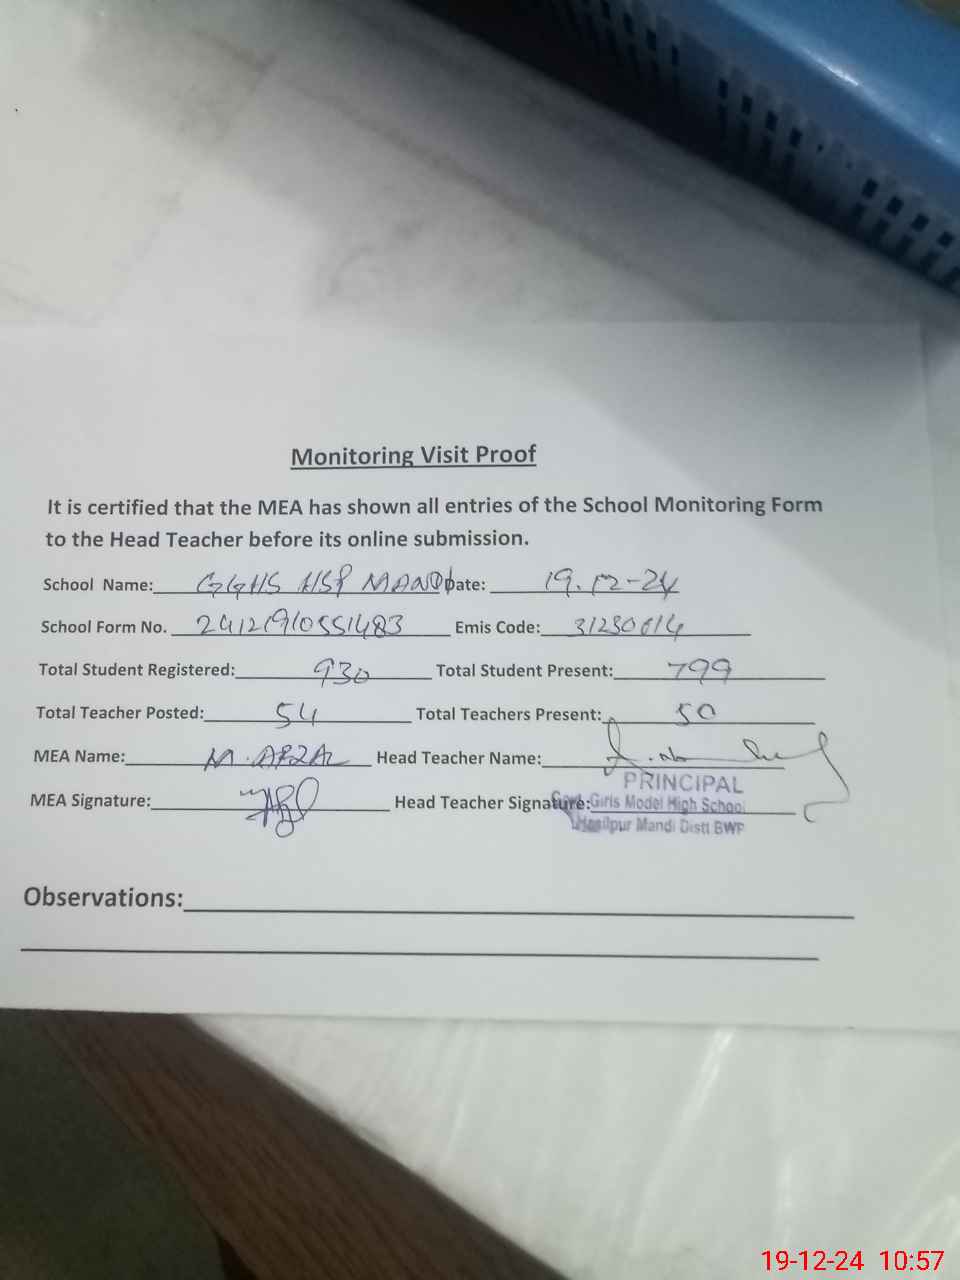 Monitoring Visit Proof
It is certified that the MEA has shown all entries of the School Monitoring Form
to the Head Teacher before its online submission.
School Name: GGHS HSP MANDI Date: 19-12-24
School Form No. 24121910551483 Emis Code: 31230014
Total Student Registered: 930 Total Student Present: 799
Total Teacher Posted: 54 Total Teachers Present: 50
MEA Name: M. AFZAL Head Teacher Name:
PRINCIPAL
MEA Signature: Head Teacher Signature: Govt. Girls Model High School
Hasilpur Mandi Distt BWP
Observations:
19-12-24 10:57